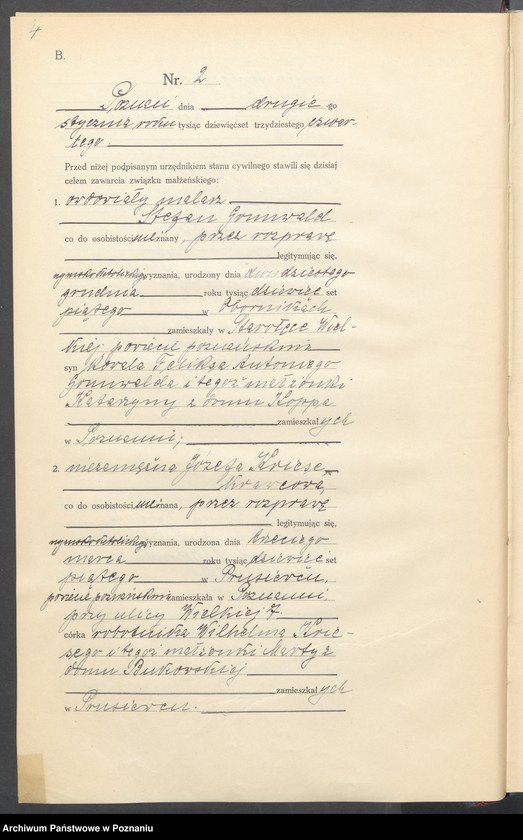 4
B.
Nr. 2
Poznań dnia drugiego
stycznia roku tysiąc dziewięćset trzydziestego czwar-
tego.
Przed niżej podpisanym urzędnikiem stanu cywilnego stawili się dzisiaj
celem zawarcia związku małżeńskiego:
1. owdowiały malarz
Stefan Grunwald
co do osobistości nieznany, przez rozprawę
legitymując się,
rzymsko katolickiego wyznania, urodzony dnia dwudziestego
grudnia roku tysiąc dziewięćset
piątego w Obornikach
zamieszkały w Starołęce Wiel-
kiej powiecie poznańskim
syn Feliksa Antoniego
Grunwalda i tegoż małżonki
Katarzyny z domu Koppa
zamieszkałych
w Poznaniu;
2. niezamężna Józefa Kriese
krawcowa,
co do osobistości nieznana, przez rozprawę
legitymując się,
rzymsko katolickiego wyznania, urodzona dnia trzeciego
marca roku tysiąc dziewięćset
piątego w Prusiewcu,
powiecie poznańskim zamieszkała w Poznaniu,
przy ulicy Wielkiej 7
córka robotnika Wilhelma Krie-
sego i tegoż małżonki Marty z
domu Bukowskiej
zamieszkałych
w Prusiewcu.
Archiwum Państwowe w Poznaniu